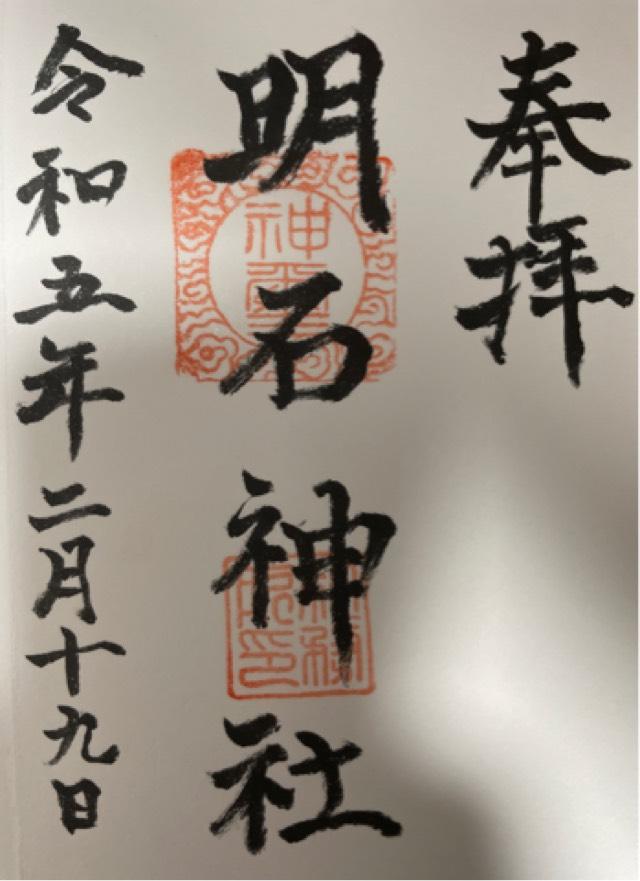 奉拝
明石神社
令和五年二月十九日